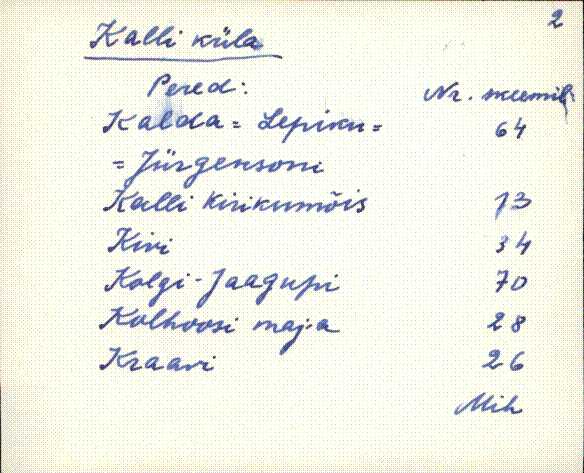 2
Kalli küla
Pered: Nr. skeemil
Kalda = Lepiku = 64
= Jürgensoni
Kalli Kirikumõis 13
Kivi 34
Kolgi-Jaagupi 70
Kolhoosi maja 28
Kraavi 26
Mih